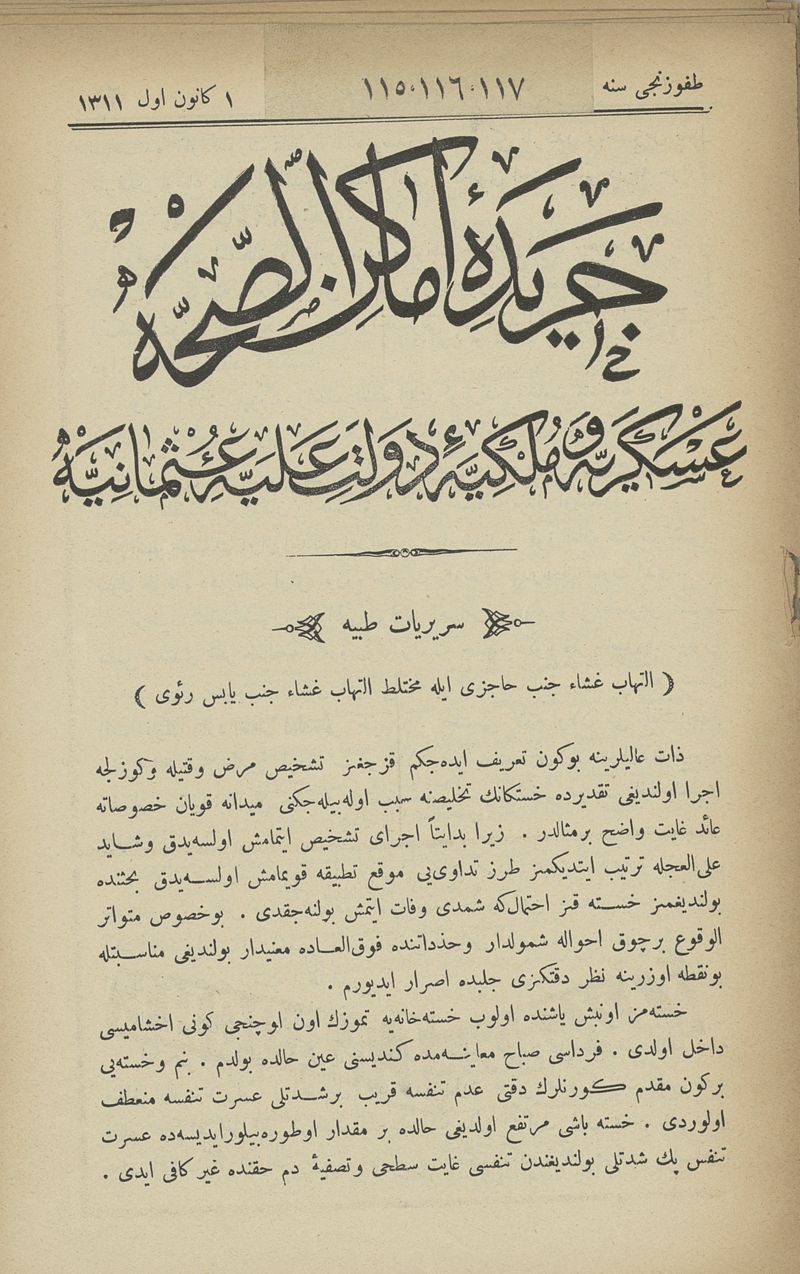 طقوزنجی سنه
١١٥٠١١٦٠١١٧
١ كانون اول ١٣١١
جريدهٔ اماكن الصحه
عسكريه و ملكيهٔ دولت عليهٔ عثمانيه
سريريات طبيه
( التهاب غشاء جنب حاجزی ايله مختلط التهاب غشاء جنب يابس رئوی )
ذات عاليلرينه بوكون تعريف ايده‌جكم قزجغز تشخيص مرض وقتيله وكوزلجه
اجرا اولنديغی تقديرده خستكانك تخليصنه سبب اوله‌بيله‌جكنی ميدانه قويان خصوصاته
عائد غايت واضح برمثالدر . زيرا بدايتاً اجرای تشخيص ايتمامش اولسه‌يدق وشايد
علی‌العجله ترتيب ايتديكمز طرز تداوی‌يی موقع تطبيقه قويمامش اولسه‌يدق بحثنده
بولنديغمز خسته قز احتمال‌كه شمدی وفات ايتمش بولنه‌جقدی . بوخصوص متواتر
الوقوع برچوق احواله شمولدار وحدذاتنده فوق‌العاده معنيدار بولنديغی مناسبتله
بونقطه اوزرينه نظر دقتكزی جلبده اصرار ايديورم .
خسته‌مز اونبش ياشنده اولوب خسته‌خانه‌يه تموزك اون اوچنجی كونی اخشاميسی
داخل اولدی . فرداسی صباح معاينه‌مده كنديسنی عين حالده بولدم . بنم وخسته‌يی
بركون مقدم كورنلرك دقتی عدم تنفسه قريب برشدتلی عسرت تنفسه منعطف
اولوردی . خسته باشی مرتفع اولديغی حالده بر مقدار اوطوره‌بيلورايديسه‌ده عسرت
تنفس پك شدتلی بولنديغندن تنفسی غايت سطحی وتصفيهٔ دم حقنده غير كافی ايدی .